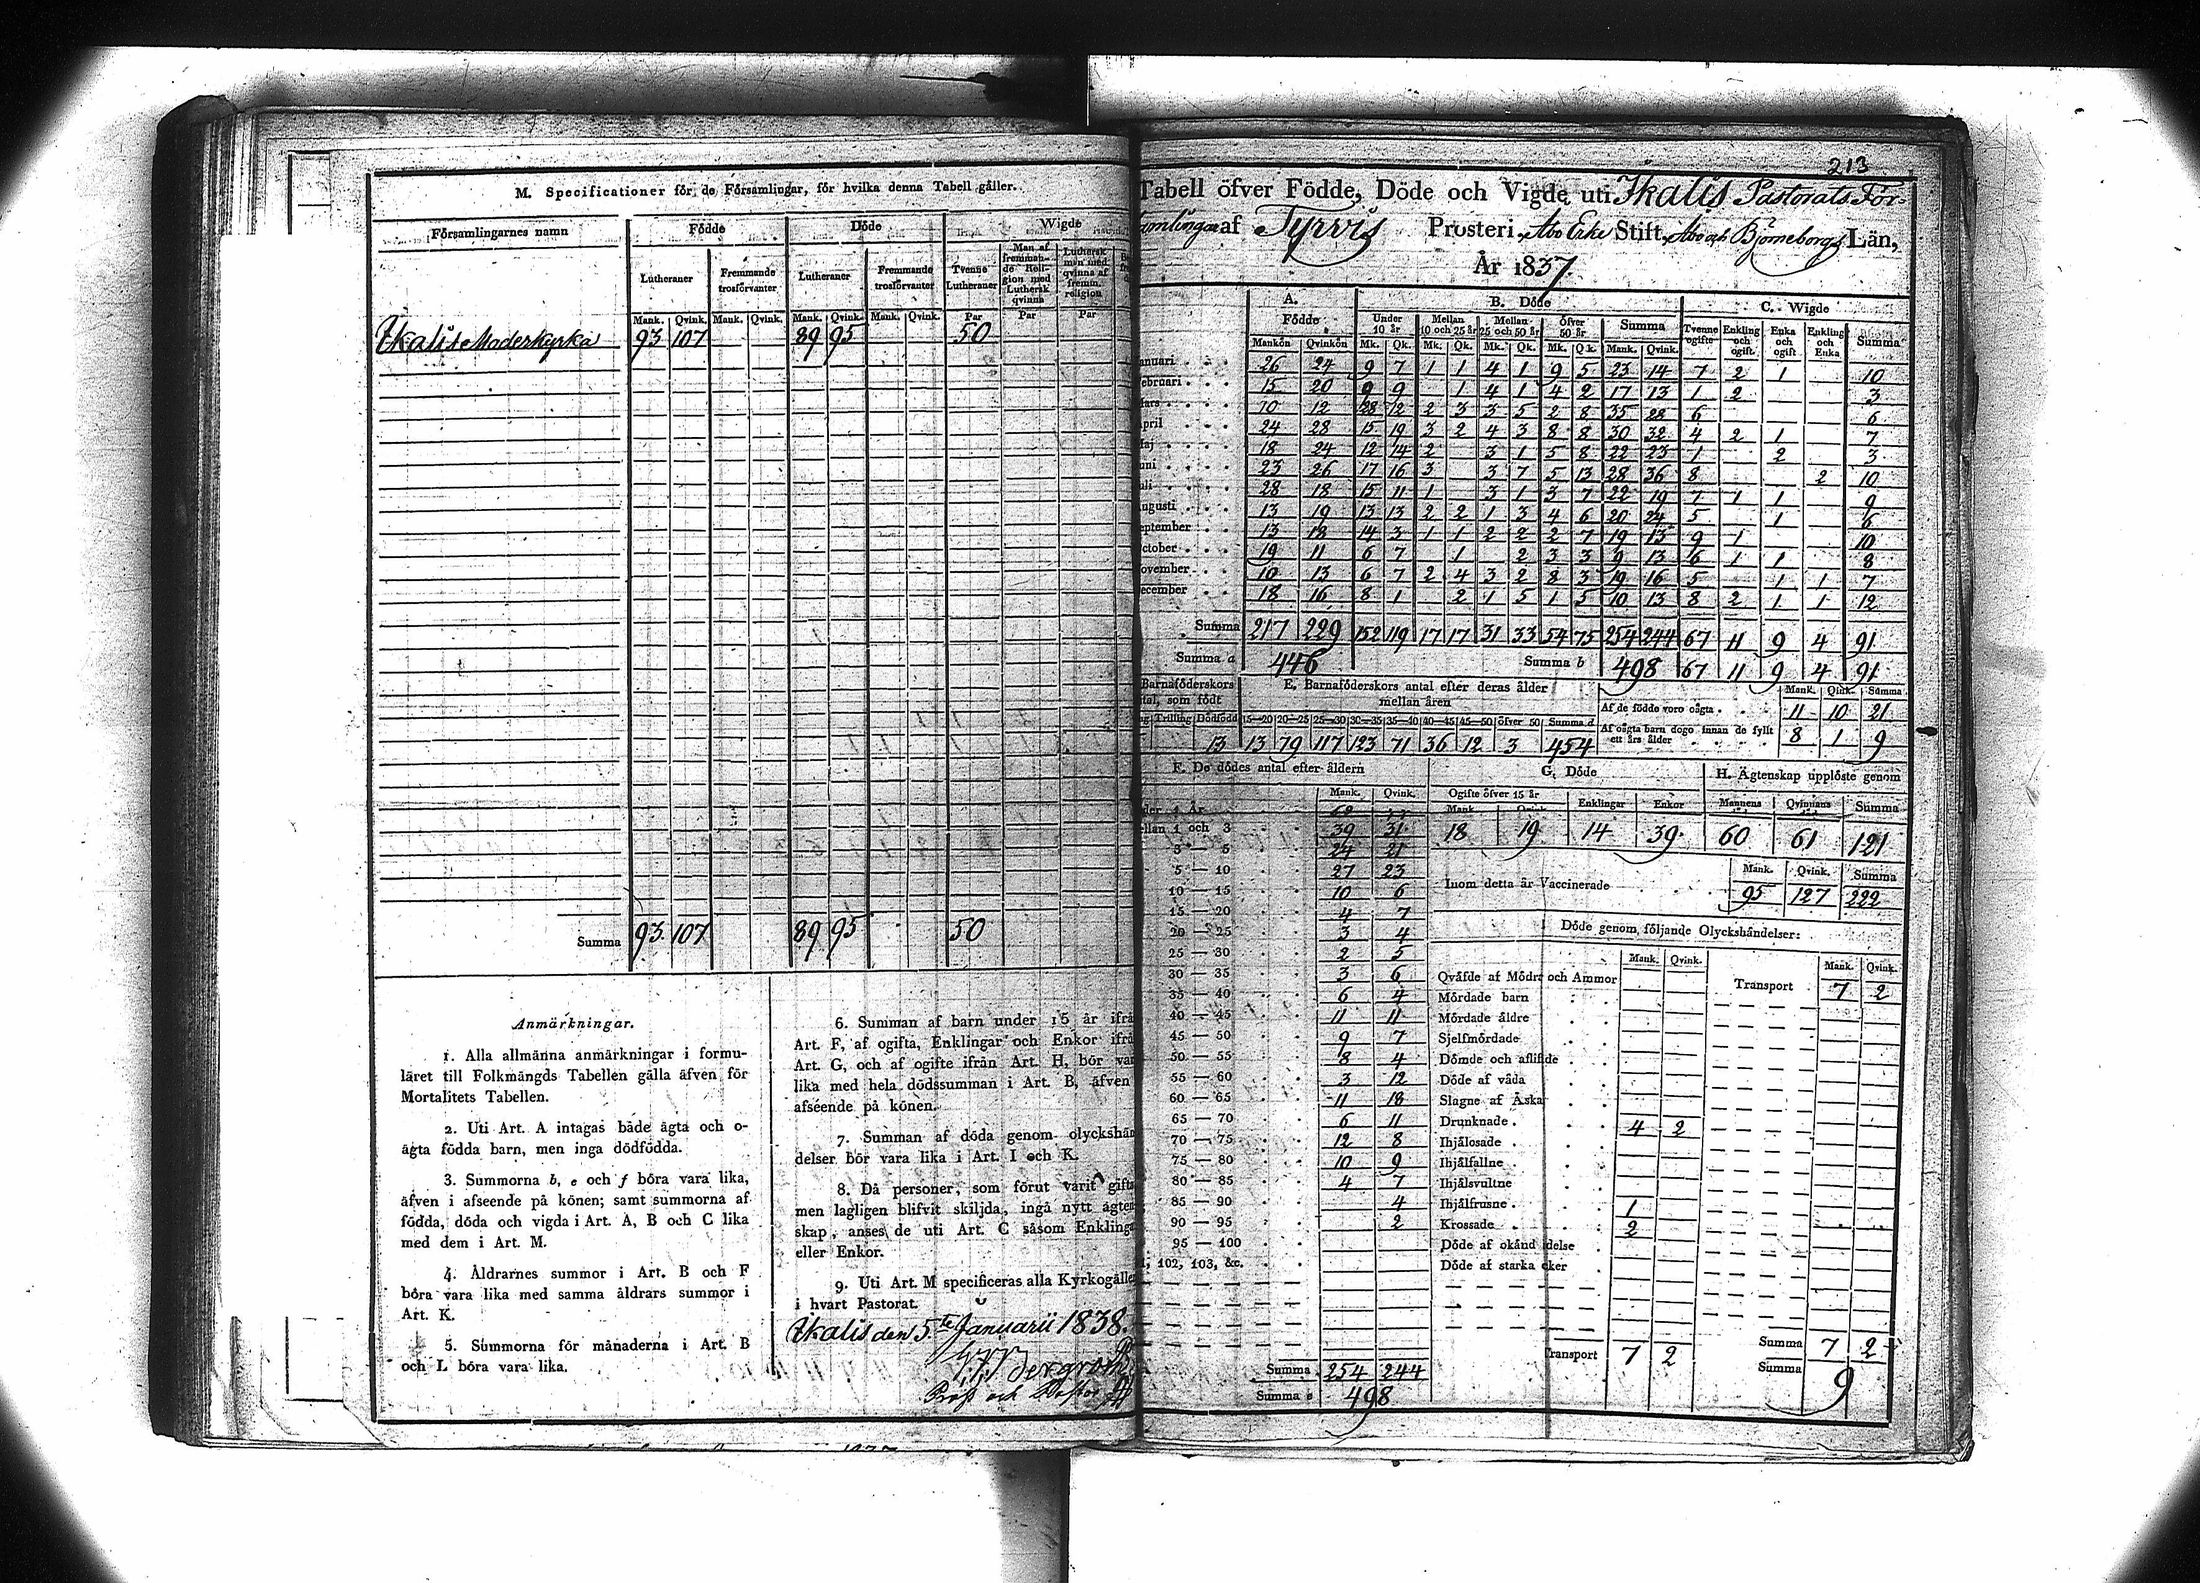 M. Specificationer för de Församlingar, för hvilka denna Tabell gäller.
Församlingarnes namn Födde Döde Wigde
Lutheraner Fremmande trosförvanter Lutheraner Fremmande trosförvanter Tvenne Lutheraner Man af fremmande Religion med Luthersk qvinna Luthersk man med qvinna af fremm. religion
Mank. Qvink. Mank. Qvink. Mank. Qvink. Mank. Qvink. Par Par Par
Ikalis Moderkyrka 93 107 89 95 50
Summa 93 107 89 95 50
Anmärkningar.
1. Alla allmänna anmärkningar i formu-
läret till Folkmängds Tabellen gälla äfven för
Mortalitets Tabellen.
2. Uti Art. A intagas både ägta och o-
ägta födda barn, men inga dödfödda.
3. Summorna b, e och f böra vara lika,
äfven i afseende på könen; samt summorna af
födda, döda och vigda i Art. A, B och C lika
med dem i Art. M.
4. Åldrarnes summor i Art. B och F
böra vara lika med samma åldrars summor i
Art. K.
5. Summorna för månaderna i Art. B
och L böra vara lika.
6. Summan af barn under 15 år ifrå
Art. F, af ogifta, Enklingar och Enkor ifrå
Art. G, och af ogifte ifrån Art. H, bör var
lika med hela dödssumman i Art. B, äfven
afseende på könen.
7. Summan af döda genom olyckshän
delser bör vara lika i Art. I och K.
8. Då personer, som förut varit gifta
men lagligen blifvit skiljda, ingå nytt ägten
skap, anses de uti Art. C såsom Enklinga
eller Enkor.
9. Uti Art. M specificeras alla Kyrkogälle
i hvart Pastorat.
Ikalis den 5te Januarii 1838.
Bergroth
213
Tabell öfver Födde, Döde och Vigde uti Ikalis Pastorats För-
samlingar af Tyrvis Prosteri, Åbo Erke Stift, Åbo och Björneborgs Län,
År 1837.
A. B. Döde C. Wigde
Födde Under 10 år Mellan 10 och 25 år Mellan 25 och 50 år Öfver 50 år Summa Tvenne ogifte Enkling och ogift Enka och ogift Enkling och Enka Summa
Mankön Qvinkön Mk. Qk. Mk. Qk. Mk. Qk. Mk. Qk. Mank. Qvink.
anuari 26 24 9 7 1 1 4 1 9 5 23 14 7 2 1 10
ebruari 15 20 9 9 1 4 1 4 2 17 13 1 2 3
ars 10 12 28 12 2 3 3 5 2 8 35 28 6 6
April 24 28 15 19 3 2 4 3 8 8 30 32 4 2 1 7
Maj 18 24 12 14 2 3 1 5 8 22 23 1 2 3
uni 23 26 17 16 3 3 7 5 13 28 36 8 2 10
uli 28 18 15 11 1 3 1 3 7 22 19 7 1 1 9
ugusti 13 19 13 13 2 2 1 3 4 6 20 24 5 1 6
eptember 13 18 14 3 1 1 2 2 2 7 19 13 9 1 10
ctober 19 11 6 7 1 2 3 3 9 13 6 1 1 8
ovember 10 13 6 7 2 4 3 2 8 3 19 16 5 1 1 7
ecember 18 16 8 1 2 1 5 1 5 10 13 8 2 1 1 12
Summa 217 229 152 119 17 17 31 33 54 75 254 244 67 11 9 4 91
Summa a 446 Summa b 498 67 11 9 4 91
Barnaföderskors tal, som födt E. Barnaföderskors antal efter deras ålder mellan åren Mank. Qink. Summa
Af de födde voro oägta 11 10 21
Trilling Dödfödd 15—20 20—25 25—30 30—35 35—40 40—45 45—50 öfver 50 Summa d
13 13 79 117 123 71 36 12 3 454
Af oägta barn dogo innan de fyllt ett års ålder 8 1 9
F. De dödes antal efter åldern G. Döde H. Ägtenskap upplöste genom
Mank. Qvink. Ogifte öfver 15 år Enklingar Enkor Mannens Qvinnans Summa
Mank. Qvink.
der 1 År
ellan 1 och 3 39 31 18 19 14 39 60 61 121
3 — 5 24 21
5 — 10 27 23
10 — 15 10 6
15 — 20 4 7
20 — 25 3 4
25 — 30 2 5
30 — 35 3 6
35 — 40 6 4
40 — 45 11 11
45 — 50 9 7
50 — 55 8 4
55 — 60 3 12
60 — 65 11 18
65 — 70 6 11
70 — 75 12 8
75 — 80 10 9
80 — 85 4 7
85 — 90 4
90 — 95 2
95 — 100
102, 103, &c.
Summa 254 244
Summa e 498
Mank. Qvink. Summa
Inom detta år Vaccinerade 95 127 222
Döde genom följande Olyckshändelser:
Mank. Qvink. Mank. Qvink.
Qväfde af Mödrar och Ammor Transport 7 2
Mördade barn
Mördade äldre
Sjelfmördade
Dömde och aflifvade
Döde af våda
Slagne af Åska
Drunknade 4 2
Ihjälosade
Ihjälfallne
Ihjälsvultne
Ihjälfrusne 1
Krossade 2
Döde af okänd delse
Döde af starka cker
Transport 7 2 Summa 7 2
Summa 9